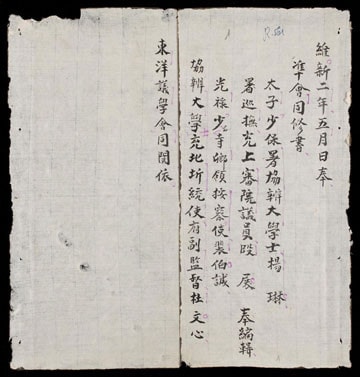 維新二年五月日奉
准會同修書
太子少保署協辦大學士楊 琳
署巡撫充上審院議員段 展 奉編輯
光祿少寺卿領按察使裴伯誠
協辦大學充北圻統使府副監督杜文心
東洋議學會同閱依